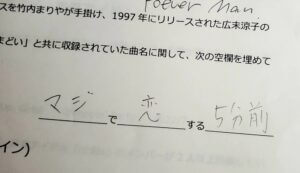 Poever Man
スを竹内まりやが手掛け、1997年にリリースされた広末涼子の
まどい」と共に収録されていた曲名に関して、次の空欄を埋めて
マジで恋する5分前
イン）